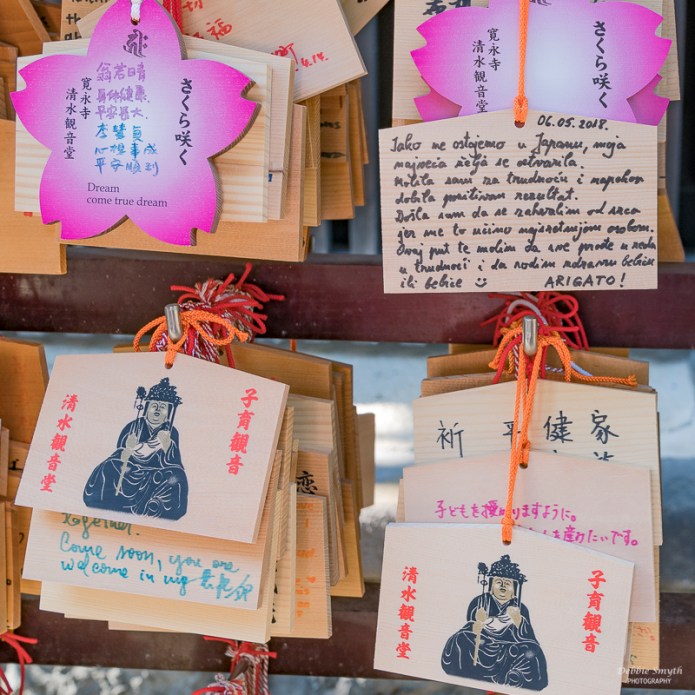 さくら咲く
寛永寺
清水観音堂
翁若晴
身体健康
平安長大
李慧貞
心想事成
平安順利
Dream
come true dream
さくら咲く
寛永寺
清水観音堂
06.05.2018.
Iako ne ostajemo u Japanu, moja
najveća želja se ostvarila.
Molila sam za trudnoću i napokon
dobila pozitivan rezultat.
Došla sam da se zahvalim od srca
jer me to učino najsretnijom osobom.
Ovaj put te molim da sve prođe u redu
u trudnoći i da rodim zdravu bebicu
ili bebice ARIGATO!
子育観音
清水観音堂
together.
Come soon, you are
welcome in my
恋
家
健
平
祈
子どもを授かりますように。
を産みたいです。
子育観音
清水観音堂
Debbie Smyth
PHOTOGRAPHY